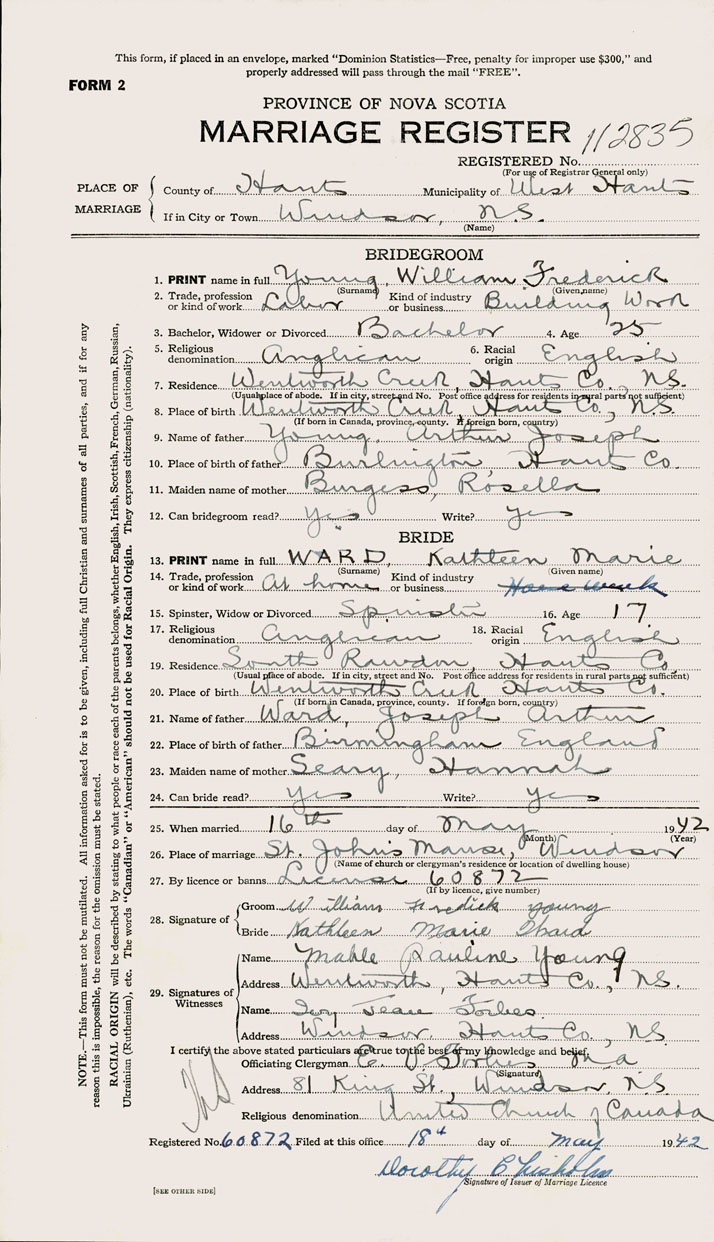 This form, if placed in an envelope, marked "Dominion Statistics—Free, penalty for improper use $300," and
properly addressed will pass through the mail "FREE".
FORM 2
PROVINCE OF NOVA SCOTIA
MARRIAGE REGISTER 112835
REGISTERED No.
(For use of Registrar General only)
PLACE OF MARRIAGE
County of Hants Municipality of West Hants
If in City or Town Windsor, N.S.
(Name)
BRIDEGROOM
1. PRINT name in full Young, William Frederick
(Surname) (Given name)
2. Trade, profession or kind of work Labor Kind of industry or business Building Work
3. Bachelor, Widower or Divorced Bachelor 4. Age 25
5. Religious denomination Anglican 6. Racial origin English
7. Residence Wentworth Creek, Hants Co., N.S.
(Usual place of abode. If in city, street and No. Post office address for residents in rural parts not sufficient)
8. Place of birth Wentworth Creek, Hants Co., N.S.
(If born in Canada, province, county. If foreign born, country)
9. Name of father Young, Arthur Joseph
10. Place of birth of father Burlington Hants Co.
11. Maiden name of mother Burgess, Rosella
12. Can bridegroom read? Yes Write? Yes
BRIDE
13. PRINT name in full WARD, Kathleen Marie
(Surname) (Given name)
14. Trade, profession or kind of work At home Kind of industry or business
15. Spinster, Widow or Divorced Spinster 16. Age 17
17. Religious denomination Anglican 18. Racial origin English
19. Residence South Rawdon, Hants Co.
(Usual place of abode. If in city, street and No. Post office address for residents in rural parts not sufficient)
20. Place of birth Wentworth Creek, Hants Co.
(If born in Canada, province, county. If foreign born, country)
21. Name of father Ward, Joseph Arthur
22. Place of birth of father Birmingham England
23. Maiden name of mother Seary, Hannah
24. Can bride read? Yes Write? Yes
25. When married 16th day of May 1942
(Month) (Year)
26. Place of marriage St. John's Manse, Windsor
(Name of church or clergyman's residence or location of dwelling house)
27. By licence or banns License 60872
(If by licence, give number)
28. Signature of
Groom William Fredick young
Bride Kathleen Marie Ward
29. Signatures of Witnesses
Name Mable Pauline Young
Address Wentworth, Hants Co., N.S.
Name Jean Forbes
Address Windsor, Hants Co., N.S.
I certify the above stated particulars are true to the best of my knowledge and belief.
Officiating Clergyman Forbes M.A
(Signature)
Address 81 King St., Windsor, N.S.
Religious denomination United Church of Canada
Registered No. 60872 Filed at this office 18th day of May 1942
Dorothy Chisholm
Signature of Issuer of Marriage Licence
[SEE OTHER SIDE]
NOTE.—This form must not be mutilated. All information asked for is to be given, including full Christian and surnames of all parties, and if for any
reason this is impossible, the reason for the omission must be stated.
RACIAL ORIGIN will be described by stating to what people or race each of the parents belongs, whether English, Irish, Scottish, French, German, Russian,
Ukrainian (Ruthenian), etc. The words "Canadian" or "American" should not be used for Racial Origin. They express citizenship (nationality).